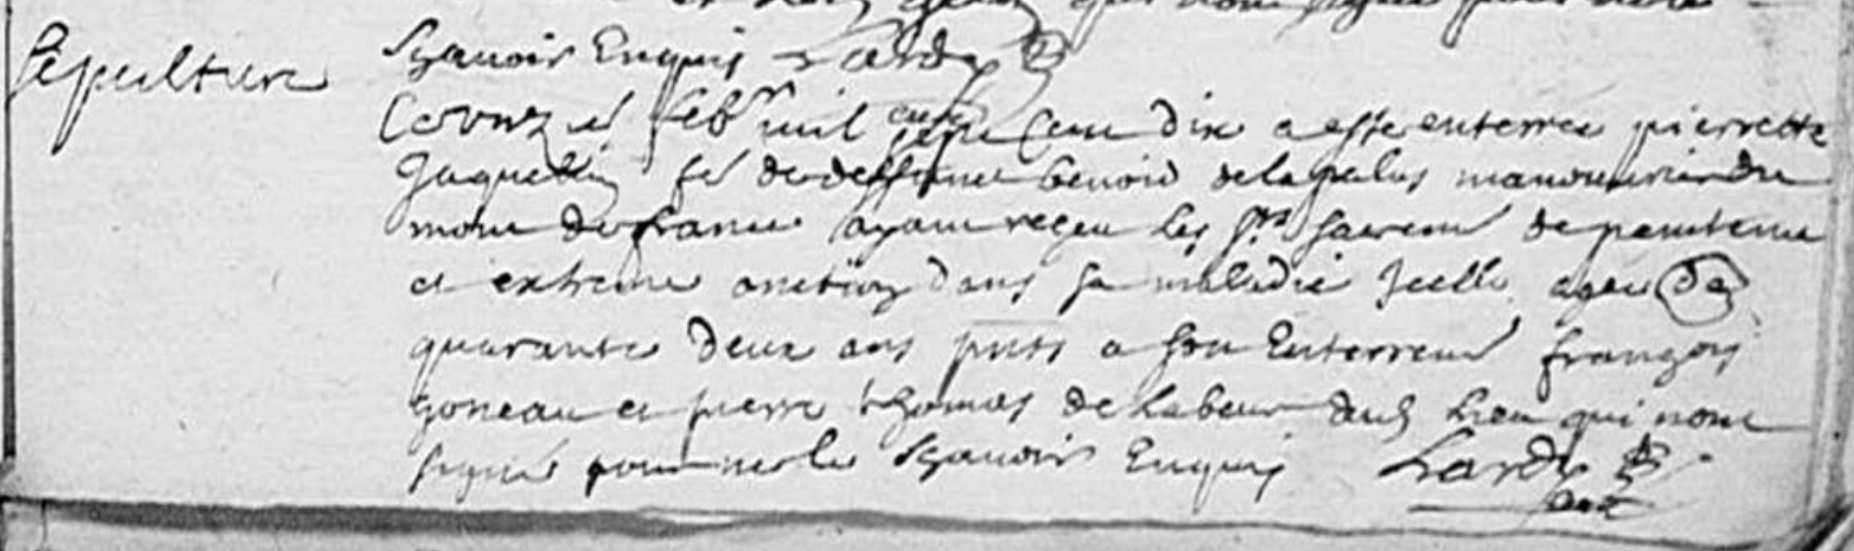 qui nont signé pour ne le
Sepulture
Sçavoir Enquis Lardy
Ce onze d febr mil sept cens dix a esté enterrée pierrette
Jaquellin fe de deffunct benoid delapalus manouvrier du
mont de france ayant reçeu les sts sacrem de penitence
et extreme onction dans sa maladie Jcelle agee de
quarante deux ans pnts a son Enterrem françois
goneau et pierre thomas de labeur dud lieu qui nont
signé pour ne le sçavoir Enquis Lardy